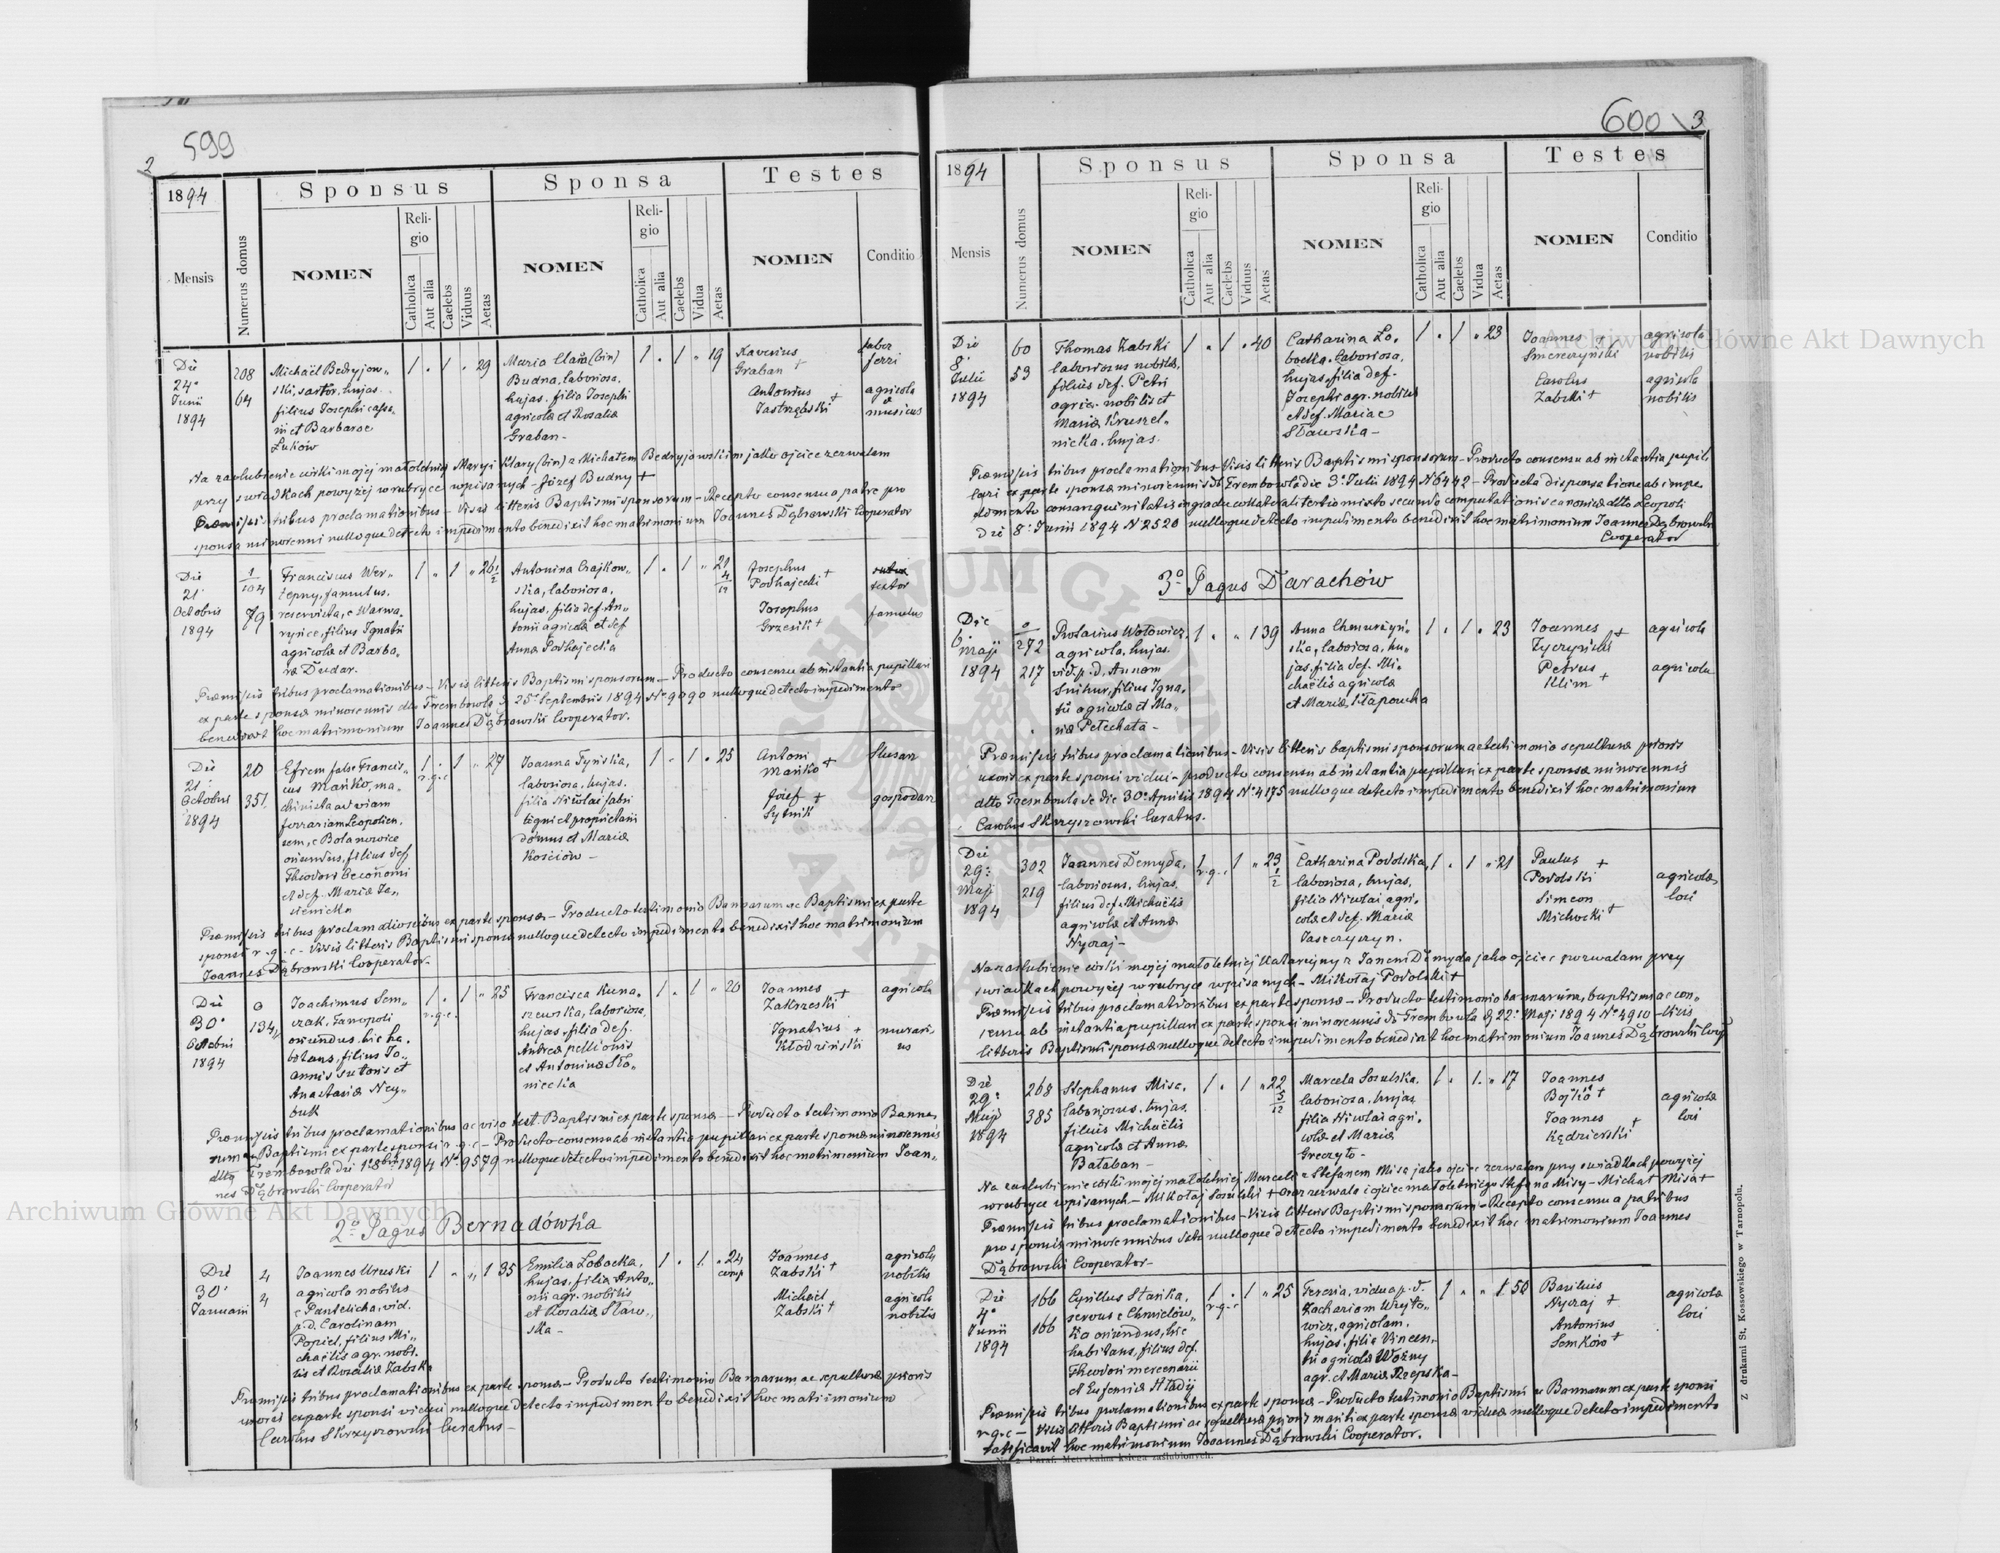 599
2
1894
Sponsus
Sponsa
Testes
Mensis
Numerus domus
NOMEN
Religio
Catholica
Aut alia
Caelebs
Viduus
Aetas
NOMEN
Religio
Catholica
Aut alia
Caelebs
Vidua
Aetas
NOMEN
Conditio
Die
24ª
Junii
1894
208
64
Michaël Bedryjow-
ski, sartor, hujas
filius Josephi
et Barbarae
Łuków
1 . 1 . 29
Maria Clara (bin)
Budna, laboriosa,
hujas, filia Josephi
agricolae et Rosaliae
Graban -
1 . 1 " 19
Xaverius
Graban +
Antonius
Jastrzębski +
faber
ferri
agricola
&
musicus
Na zaślubienie córki mojej małoletniej Maryi Klary (bin) z Michałem Bedryjowskim jako ojciec zezwalam
przy świadkach powyżej w rubryce wpisanych - Józef Budny +
Praemissis tribus proclamationibus - Visis litteris Baptismi sponsorum - Recepto consensu a patre pro
sponsa minorenni nulloque detecto impedimento benedixit hoc matrimonium Joannes Dąbrowski Cooperator
Die
21
Octobris
1894
1/104
79
Franciscus Wer-
żepny, famulus,
reservista, e Warwa-
ryńce, filius Ignatii
agricolae et Barba-
rae Dudar.
1 " 1 " 26 1/2
Antonina Czajkow-
ska, laboriosa,
hujas, filia def. An-
tonii agricolae et def
Anna Podhajecka
1 . 1 " 21
Josephus
Podhajecki +
Josephus
Grzesik +
textor
famulus
Praemissis tribus proclamationibus - Visis litteris Baptismi sponsorum - Producto consensu ab instantia pupillari
ex parte sponsae minorennis dto Trembowla d. 25. Septembris 1894 Nº 9090 nulloque detecto impedimento
benedixit hoc matrimonium Joannes Dąbrowski Cooperator.
Die
21
Octobris
1894
20
351.
Efrem false Francis-
cus Mańko, ma-
chinista ad viam
ferrariam Leopolien-
sem, e Botanowice
oriundus, filius def
Theodori oeconomi
et def. Mariae Ja-
sienicka
1 . 1 " 27
r.g.c.
Joanna Tyńska,
laboriosa, hujas.
filia Nicolai fabri
lignei et proprietarii
domus et Mariae
Kościów -
1 . 1 . 25
Antoni
Mańko +
Józef +
Sytnik
ślusarz
gospodarz
Praemissis tribus proclamationibus ex parte sponsae - Producto testimonio Bannorum ac Baptismi ex parte
sponsi r.g.c - Visis litteris Baptismi sponsae nulloque detecto impedimento benedixit hoc matrimonium
Joannes Dąbrowski Cooperator.
Die
30ª
Octobris
1894
134
Joachimus Sem-
czak, Tanopoli
oriundus, hic ha-
bitans, filius Jo-
annis sutoris et
Anastasiae Ney-
buk
1 . 1 " 25
r.g.c.
Francisca Kuna-
szewska, laboriosa,
hujas, filia def.
Andreae pellionis
et Antoninae Sło-
niecka
1 . 1 " 20
Joannes
Zakrzeski +
Ignatius +
Kłodziński
agricola
murari-
us
Praemissis tribus proclamationibus ac viso test. Baptismi ex parte sponsae - Producto testimonio Banno-
rum ac Baptismi ex parte sponsi r.g.c - Producto consensu ab instantia pupillari ex parte sponsae minorennis
dto Trembowla die 1 8bris 1894 Nº 9579 nulloque detecto impedimento benedixit hoc matrimonium Joan-
nes Dąbrowski Cooperator
2º Pagus Bernadówka
Die
30ª
Januarii
4
4
Joannes Uruski
agricola nobilis
e Pantelicha, vid.
p.d. Carolinam
Popiel, filius Mi-
chaëlis agr. nobi-
lis et Rosaliae Zabska
1 " " 1 35
Emilia Łobocka,
hujas, filia Anto-
nii agr. nobilis
et Rosaliae Staw-
ska -
1 . 1. " 24
comp
Joannes
Zabski +
Michaël
Zabski +
agricola
nobilis
agricola
nobilis
Praemissis tribus proclamationibus ex parte sponsae - Producto testimonio Bannorum ac sepulturae prioris
uxoris ex parte sponsi vidui nulloque detecto impedimento benedixit hoc matrimonium
Carolus Skrzyszowski Curatus -
600
3
1894
Sponsus
Sponsa
Testes
Mensis
Numerus domus
NOMEN
Religio
Catholica
Aut alia
Caelebs
Viduus
Aetas
NOMEN
Religio
Catholica
Aut alia
Caelebs
Vidua
Aetas
NOMEN
Conditio
Die
8.
Julii
1894
60
53
Thomas Zabski
laboriosus nobilis,
filius def. Petri
agric. nobilis et
Mariae Kruszel-
nicka, hujas.
1 . 1 . 40
Catharina Ło-
bocka, laboriosa,
hujas, filia def.
Josephi agr. nobilis
et def. Mariae
Stawska -
1 . 1 . 23
Joannes +
Smereczyński
Carolus
Zabski +
agricola
nobilis
agricola
nobilis
Praemissis tribus proclamationibus - Visis litteris Baptismi sponsorum - Producto consensu ab instantia pupil-
lari ex parte sponsae minorennis dto Trembowla die 3 Julii 1894 N 6442 - Producta dispensatione ab impe-
dimento consanguinitatis in gradu collaterali tertio mixto secundo computationis canonicae ddto Leopoli
die 8. Junii 1894 Nº 2520 nulloque detecto impedimento benedixit hoc matrimonium Joannes Dąbrowski
Cooperator
3º Pagus Darachów
Die
6.
Maji
1894
272
217
Protasius Wołowicz
agricola, hujas.
vid. p.d. Annam
Snihur, filius Igna-
tii agricolae et Ma-
riae Petechata -
1 . " 1 39
Anna Chmurzyń-
ska, laboriosa, hu-
jas, filia def. Mi-
chaëlis agricolae
et Mariae Kłapoucha
1 . 1 . 23
Joannes +
Zyczyński
Petrus
Klim +
agricola
agricola
Praemissis tribus proclamationibus - Visis litteris baptismi sponsorum ac testimonio sepulturae prioris
uxoris ex parte sponsi vidui - producto consensu ab instantia pupillari ex parte sponsae minorennis
ddto Trembowla de die 30 Aprilis 1894 Nº 4175 nulloque detecto impedimento benedixit hoc matrimonium
Carolus Skrzyszowski Curatus.
Die
29.
Maji
1894
302
219
Joannes Demyda,
laboriosus, hujas,
filius def. Michaëlis
agricolae et Annae
Nycaj -
1 . 1 " 23 1/2
r.g.c.
Catharina Podolska,
laboriosa, hujas,
filia Nicolai agri-
colae et def. Mariae
Jaszczyszyn.
1 . 1 " 21
Paulus +
Podolski
Simeon
Michocki +
agricolae
loci
Na zaślubienie córki mojej małoletniej Katarzyny z Janem Demyda jako ojciec zezwalam przy
świadkach powyżej w rubryce wpisanych - Mikołaj Podolski +
Praemissis tribus proclamationibus ex parte sponsae - Producto testimonio bannorum, baptismi ac con-
sensu ab instantia pupillari ex parte sponsi minorennis dto Trembowla d. 22. Maji 1894 Nº 4910 - Visis
litteris Baptismi sponsae nulloque detecto impedimento benedixit hoc matrimonium Joannes Dąbrowski Coop
Die
29.
Maji
1894
268
385
Stephanus Misa,
laboriosus, hujas,
filius Michaëlis
agricolae et Annae
Bałaban -
1 . 1 " 22 5/12
Marcela Sosulska,
laboriosa, hujas
filia Nicolai agri-
colae et Mariae
Greczyło -
1 . 1. " 17
Joannes
Bojko +
Joannes +
Kędzierski
agricolae
loci
Na zaślubienie córki mojej małoletniej Marceli z Stefanem Misą jako ojciec zezwalam przy świadkach powyżej
w rubryce wpisanych - Mikołaj Sosulski + oraz zezwala i ojciec małoletniego Stefana Misy - Michał Misa +
Praemissis tribus proclamationibus - Visis litteris Baptismi sponsorum - Recepto consensu a patribus
pro sponsis minorennibus dato nulloque detecto impedimento benedixit hoc matrimonium Joannes
Dąbrowski Cooperator -
Die
4ª
Junii
1894
166
166
Cyrillus Stańka,
servus e Chmielów-
ka oriundus, hic
habitans, filius def.
Theodori mercenarii
et Eufemiae Hładij
1 . 1 " 25
r.g.c
Teresia, vidua p.d.
Zachariam Wojto-
wicz, agricolam,
hujas, filia Vincen-
tii agricolae Woźny
agr. et Mariae Rzepska -
1 " " 1 50
Basilius
Nycaj +
Antonius
Semków +
agricolae
loci
Praemissis tribus proclamationibus ex parte sponsae - Producto testimonio Baptismi ac Bannorum ex parte sponsi
r.g.c - Visis litteris Baptismi ac sepulturae prioris mariti ex parte sponsae viduae nulloque detecto impedimento
ratificavit hoc matrimonium Joannes Dąbrowski Cooperator.
Paraf. Metrykalna księga zaślubionych.
Z drukarni St. Kossowskiego w Tarnopolu.
Archiwum Główne Akt Dawnych
Archiwum Główne Akt Dawnych